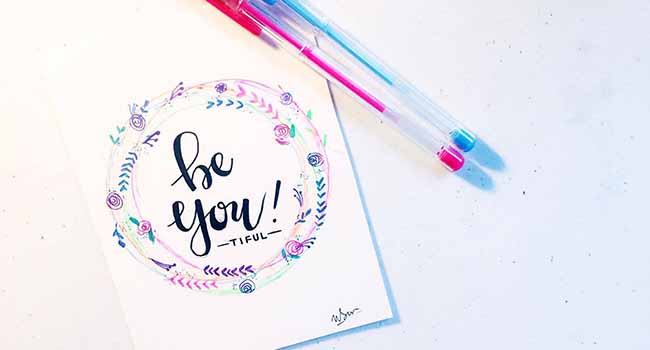 be
you!
—TIFUL—